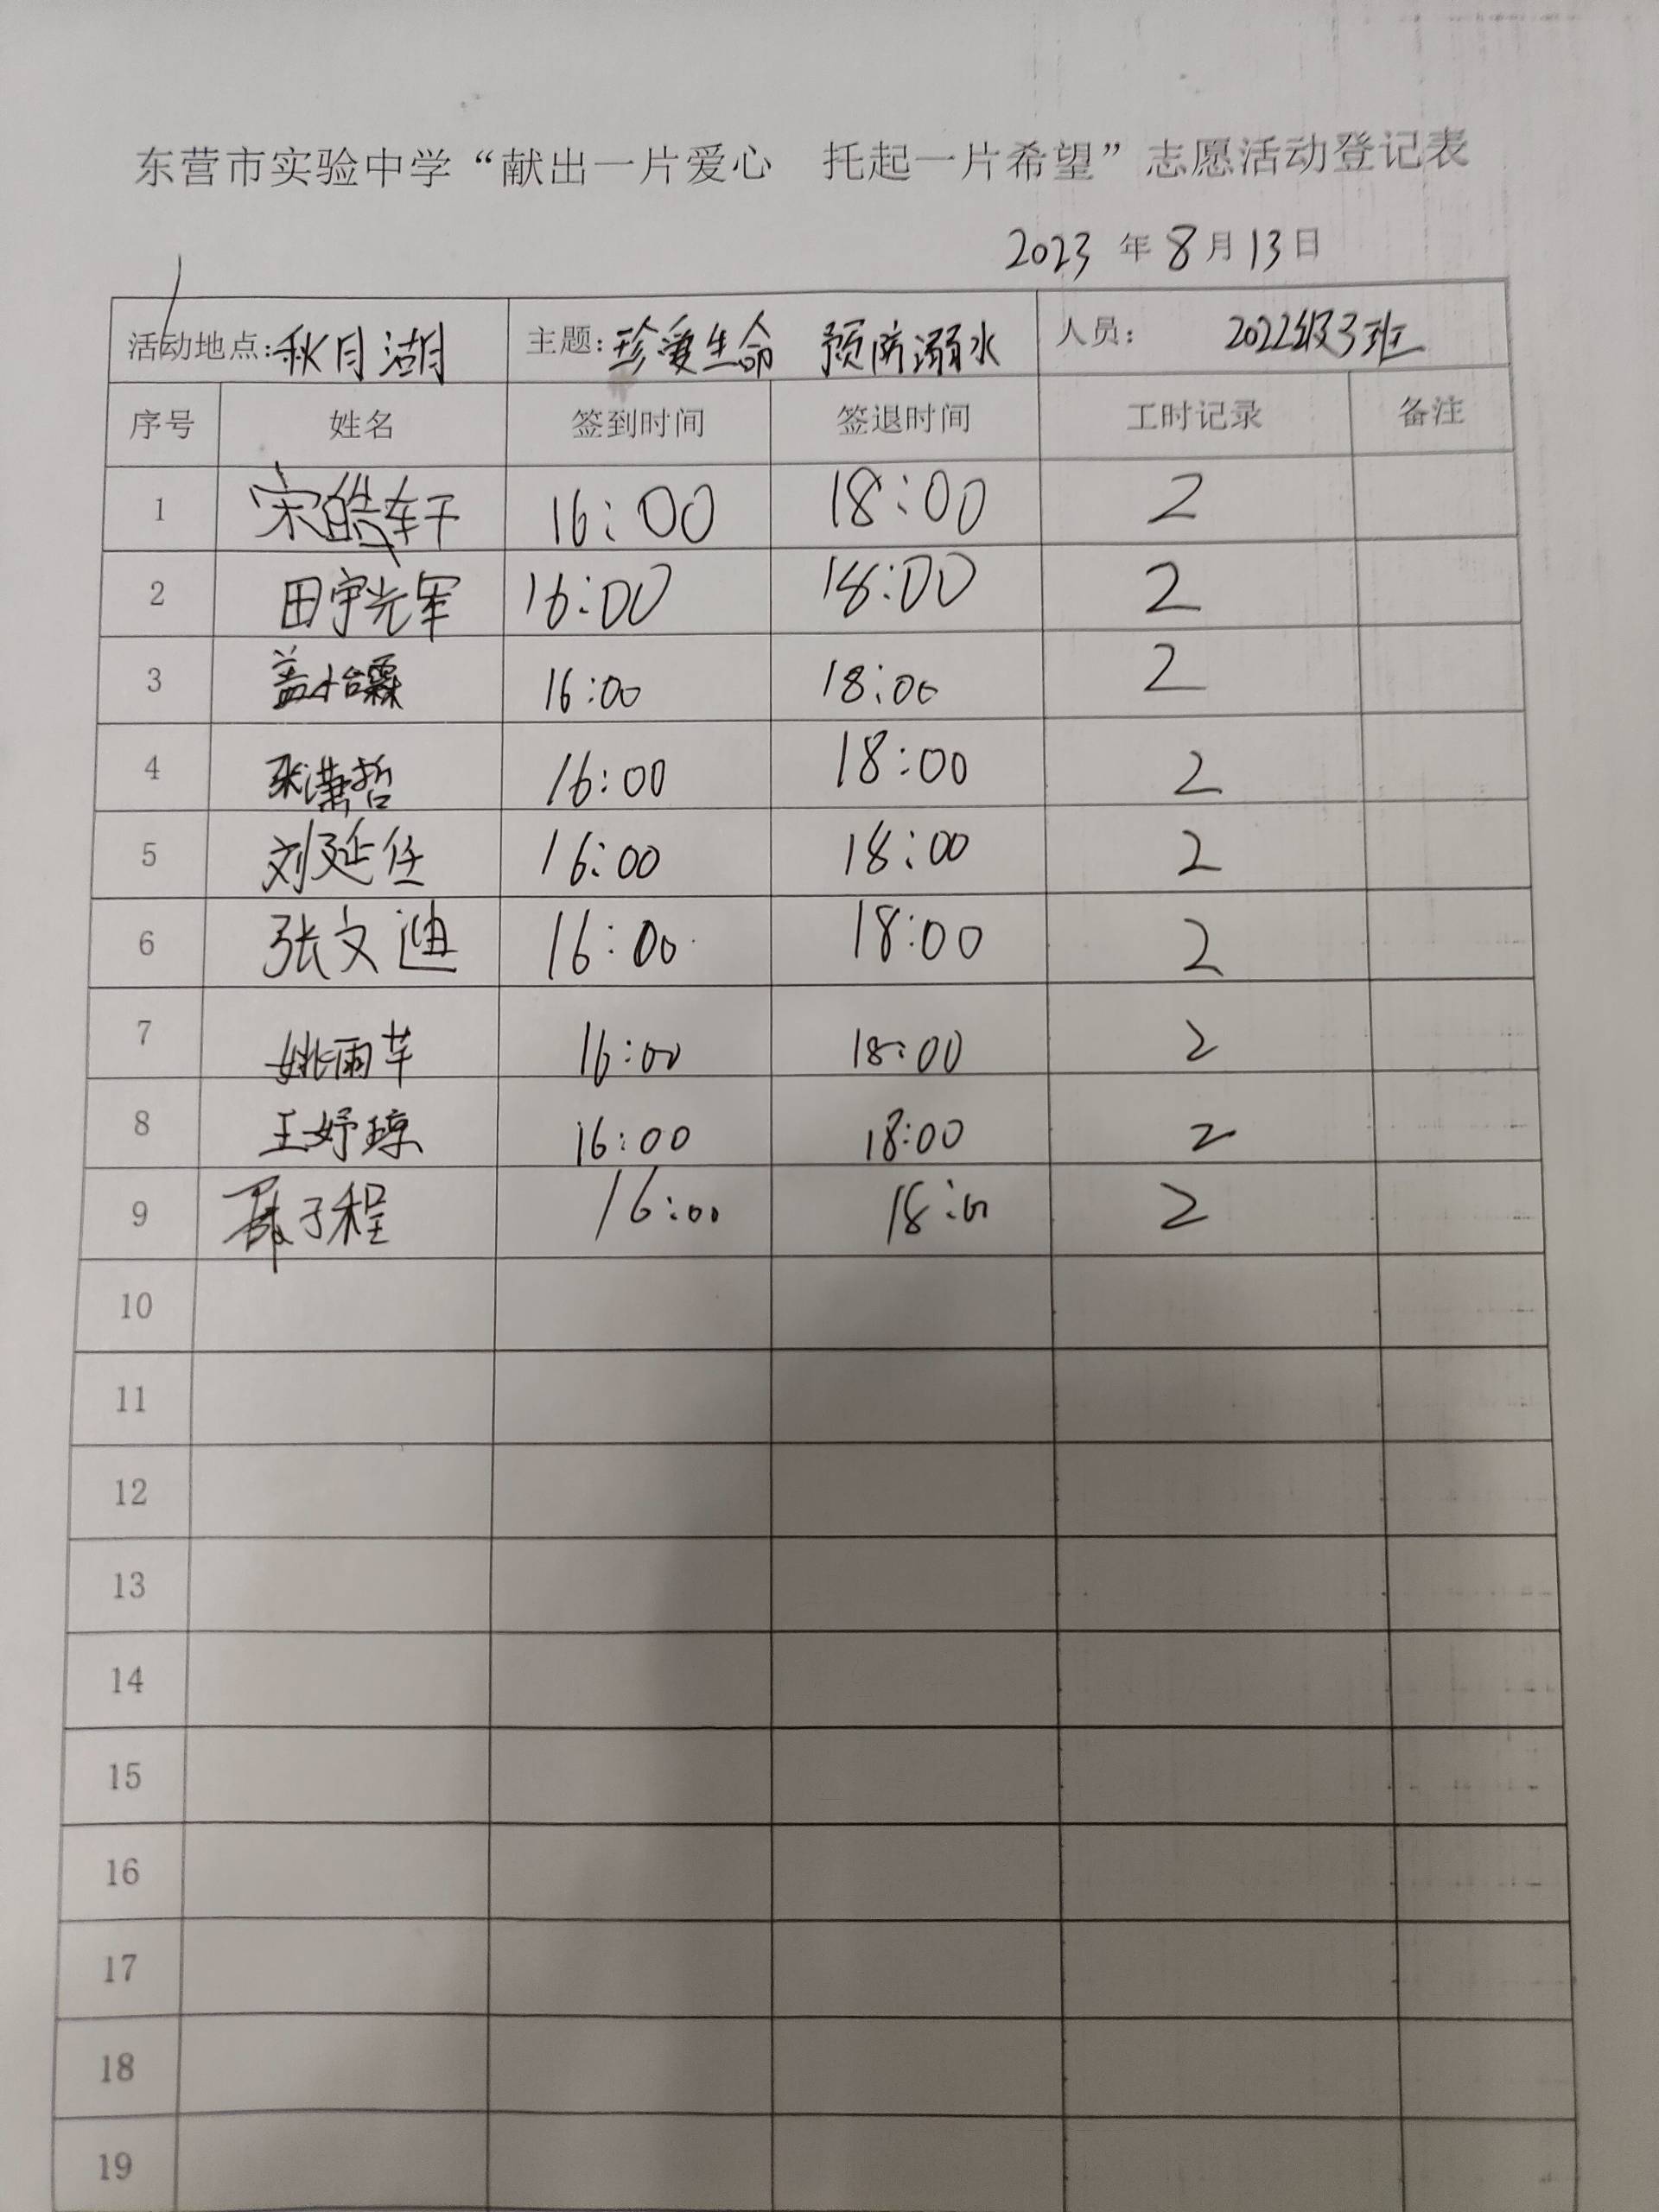 东营市实验中学“献出一片爱心 托起一片希望”志愿活动登记表
2023 年 8 月 13 日
活动地点:秋月湖 主题:珍爱生命 预防溺水 人员: 2022级3班
序号 姓名 签到时间 签退时间 工时记录 备注
1 宋皓轩 16:00 18:00 2
2 田宇光军 16:00 18:00 2
3 盖怡霖 16:00 18:00 2
4 张潇哲 16:00 18:00 2
5 刘延任 16:00 18:00 2
6 张文迪 16:00 18:00 2
7 姚雨芊 16:00 18:00 2
8 王妤琼 16:00 18:00 2
9 子程 16:00 18:00 2
10
11
12
13
14
15
16
17
18
19